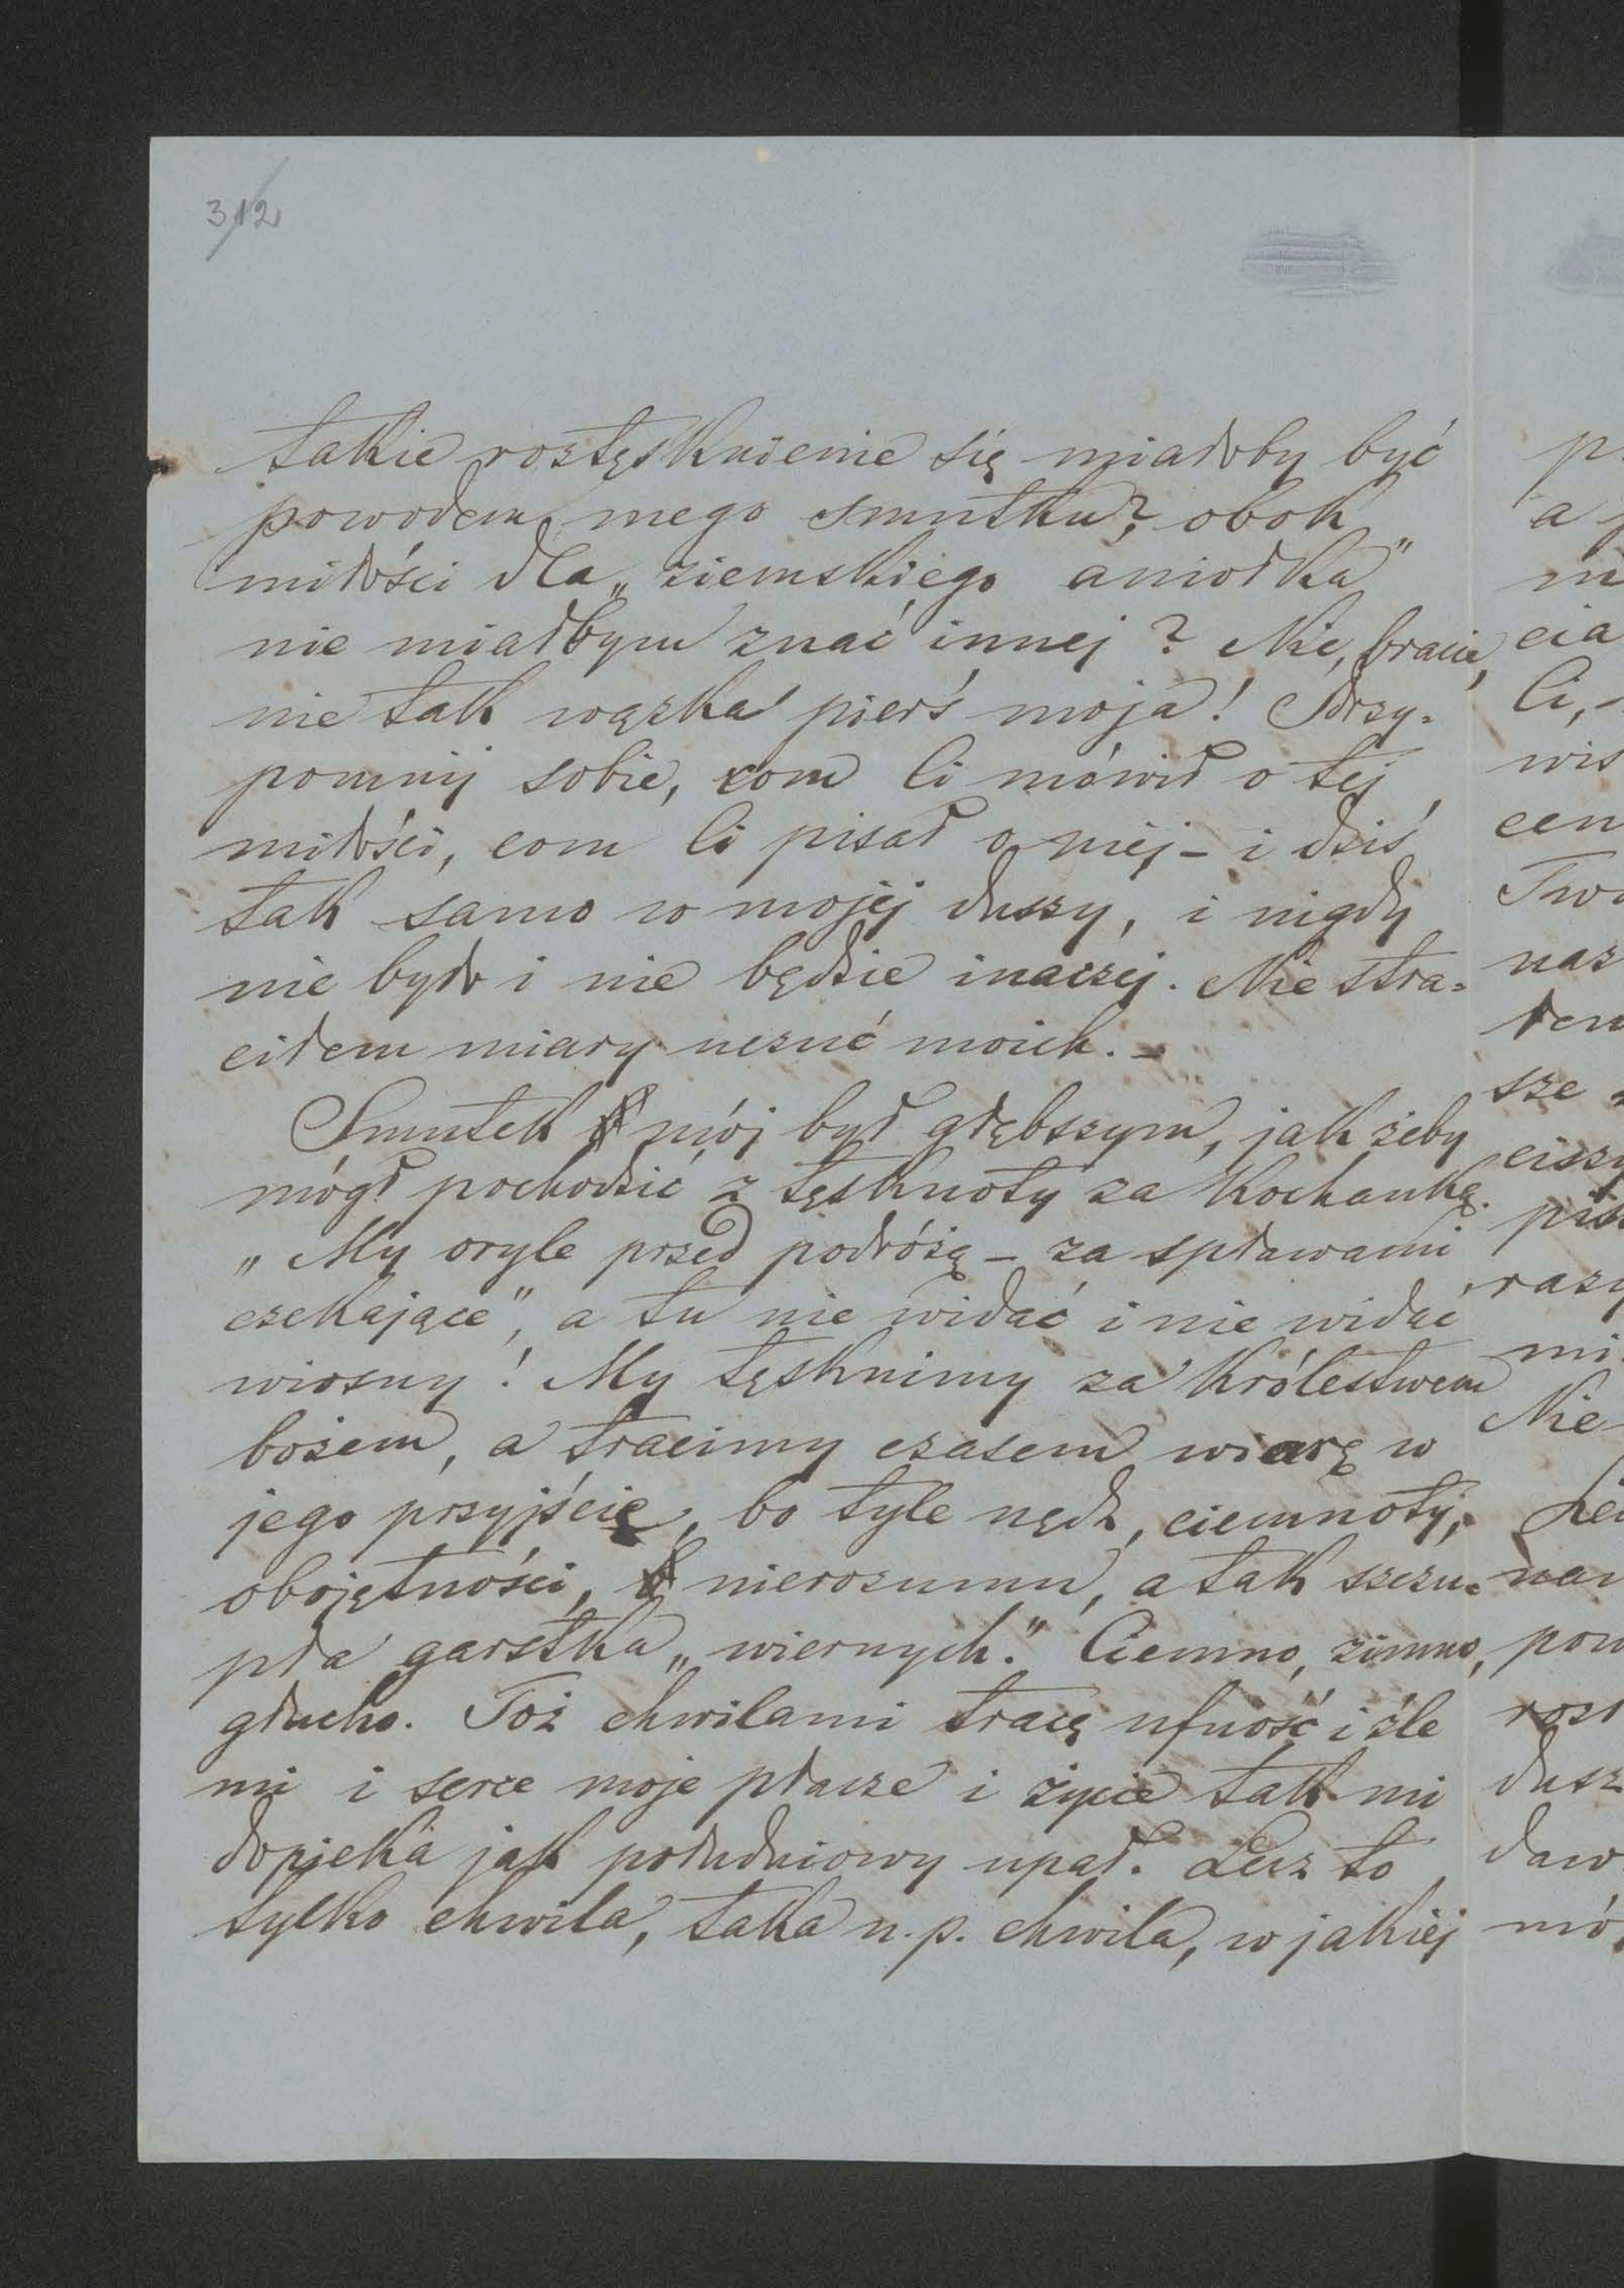 312
takie roztęsknienie się miałoby być
powodem mego smutku? obok
miłości dla „ziemskiego aniołka”
nie miałbym znać innej? Nie, bracie,
nie tak wązka pierś moja! Przy-
pomnij sobie, com Ci mówił o tej
miłości, com Ci pisał o niej – i dziś
tak samo w mojej duszy, i nigdy
nie było i nie będzie inaczej. Nie stra-
ciłem miary uczuć moich. –
Smutek mój był głębszym, jak żeby
mógł pochodzić z tęsknoty za kochanką.
„My oryle przed podróżą – za spławami
czekające”, a tu nie widać i nie widać
wiosny! My tęsknimy za królestwem
bożem, a tracimy czasem wiarę w
jego przyjście, bo tyle nędz, ciemnoty,
obojętności, nierozumu, a tak szczu-
pła garstka „wiernych.” Ciemno, zimno,
głucho. Toż chwilami tracę ufność i źle
mi i serce moje płacze i życie tak mi
dopieka jak południowy upał. Lecz to
tylko chwila, taka n.p. chwila, w jakiej